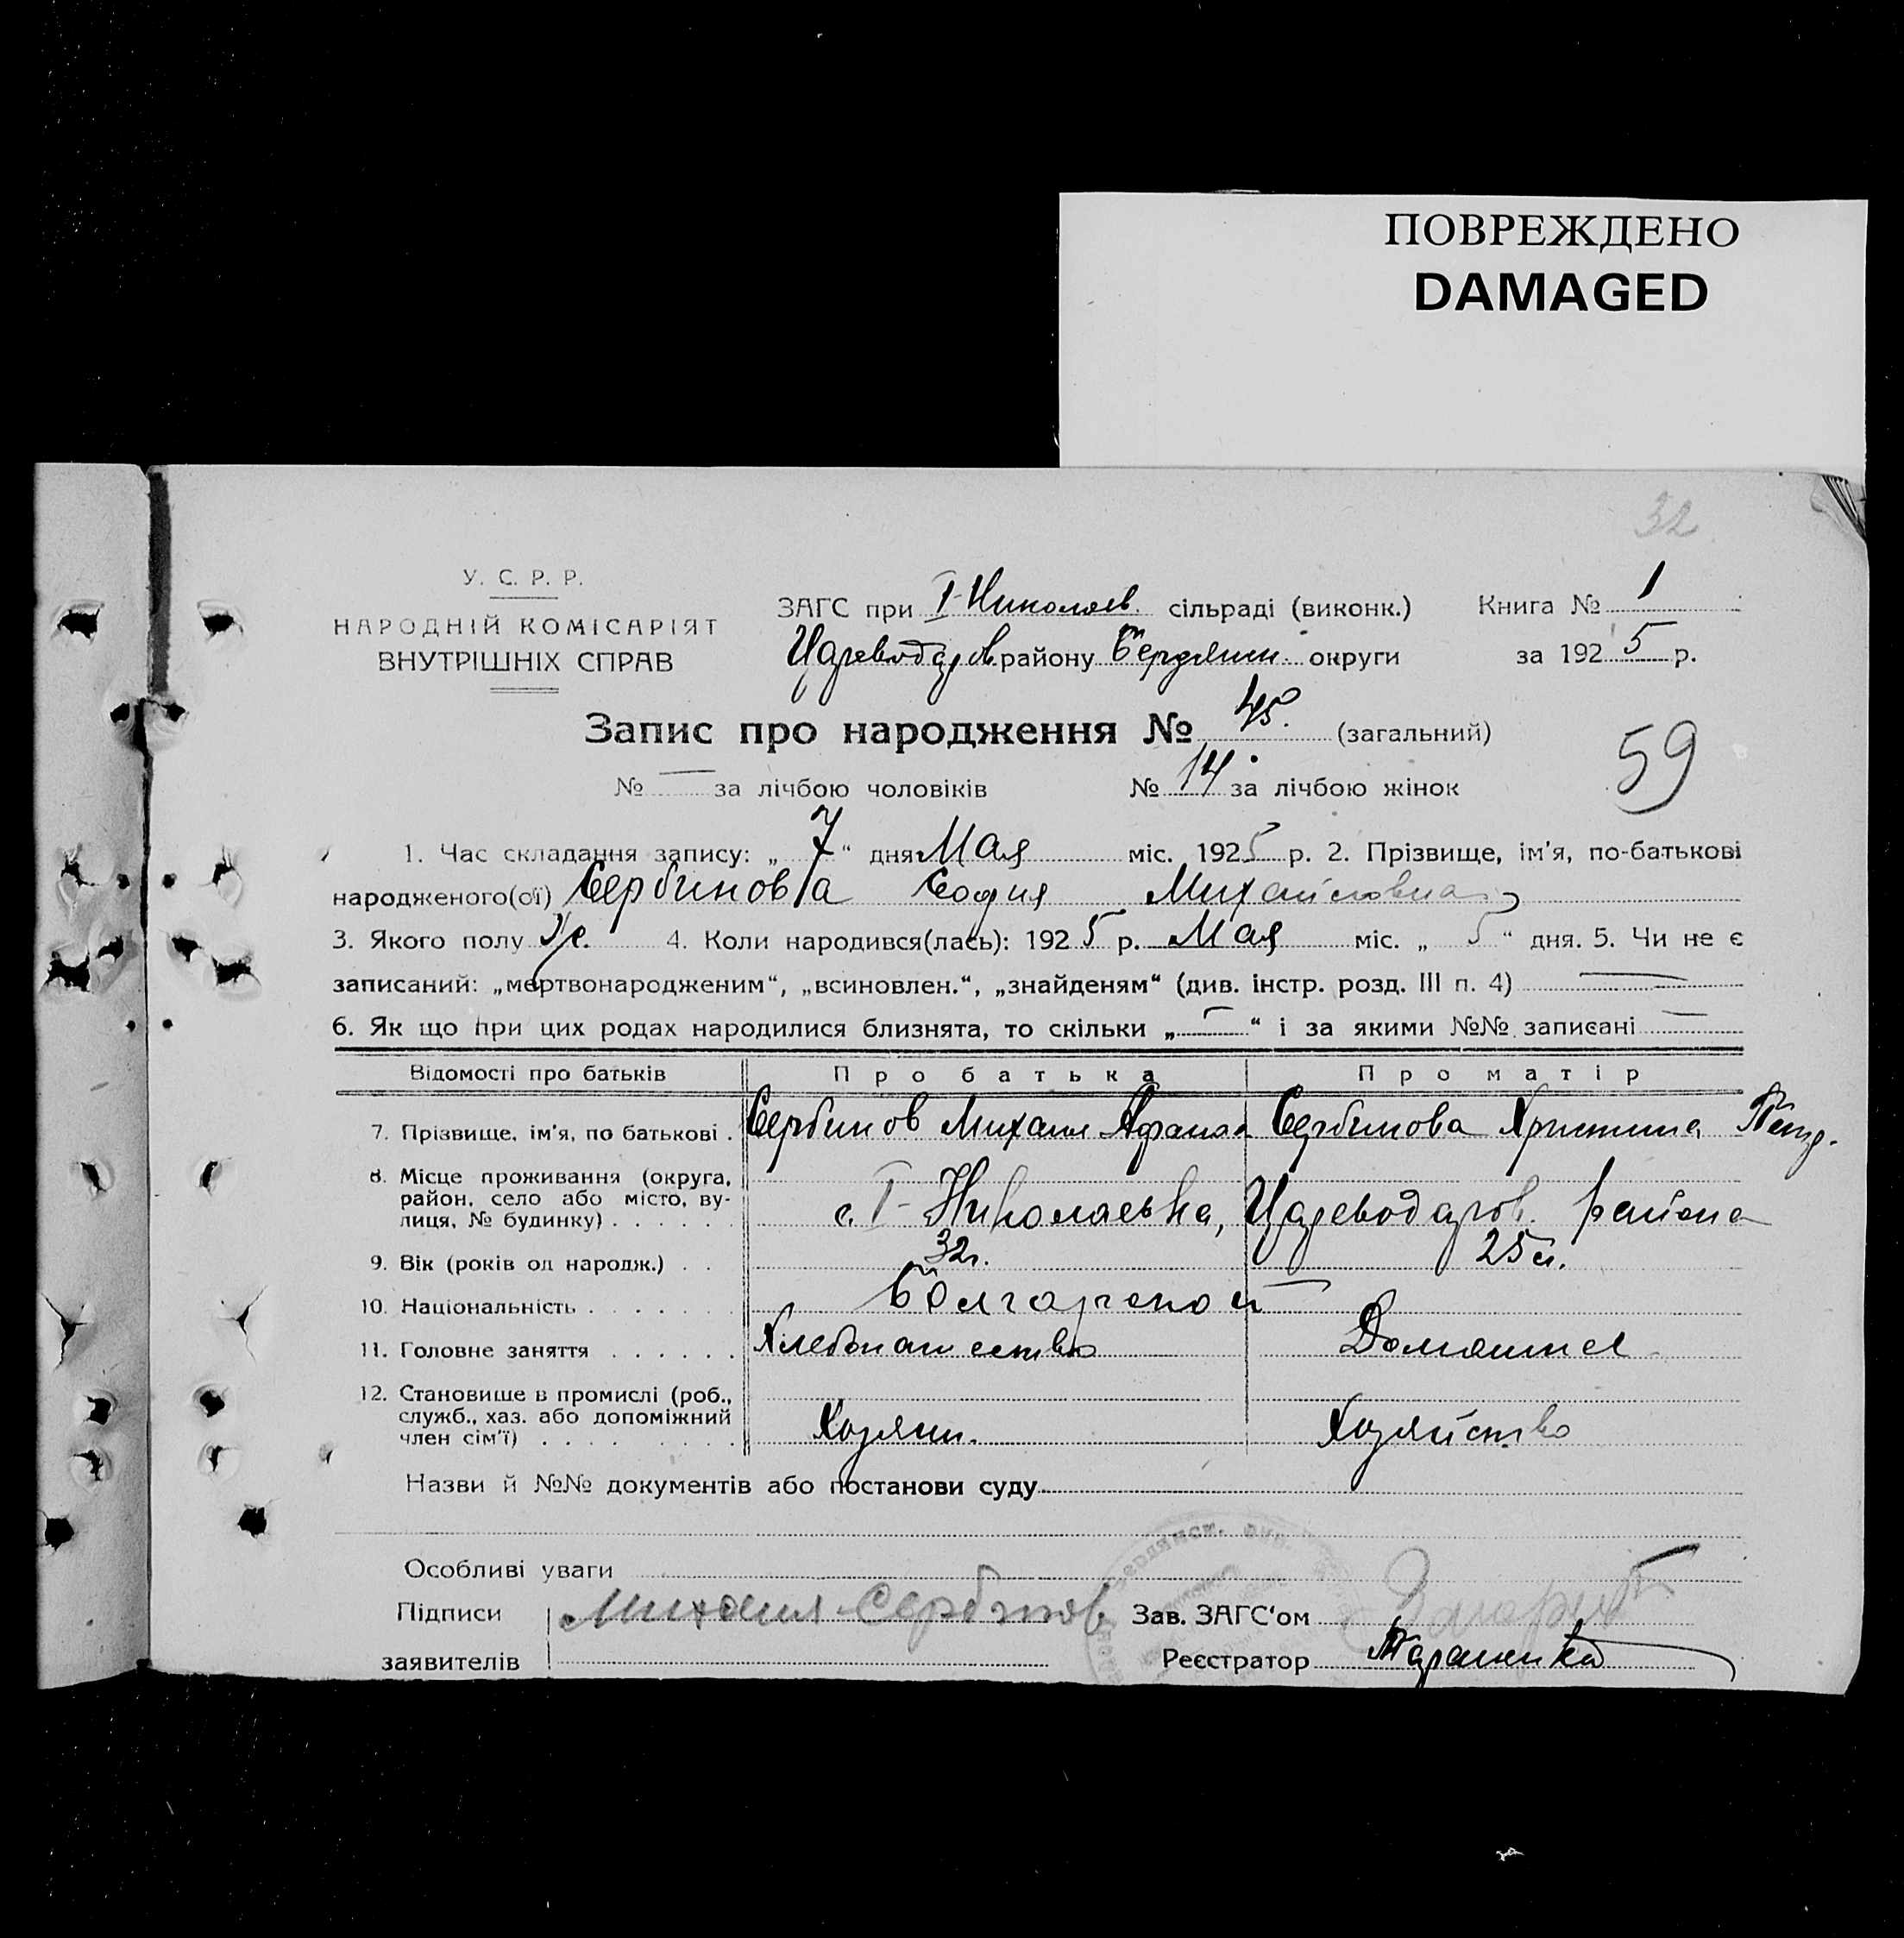 ПОВРЕЖДЕНО
DAMAGED
32
У. С. Р. Р.
НАРОДНІЙ КОМІСАРІЯТ
ВНУТРІШНІХ СПРАВ
ЗАГС при I-Николаев. сільраді (виконк.) Книга № 1
Цареводаров. району Бердянск. округи за 1925 р.
Запис про народження № 45. (загальний)
№ — за лічбою чоловіків № 14 за лічбою жінок
59
1. Час складання запису: „ 7 “ дня Мая міс. 1925 р. 2. Прізвище, ім'я, по-батькові
народженого(ої) Сербинова София Михайловна
3. Якого полу ж. 4. Коли народився(лась): 1925 р. Мая міс. „ 5 “ дня. 5. Чи не є
записаний: „мертвонародженим“, „всиновлен.“, „знайденям“ (див. інстр. розд. III п. 4) —
6. Як що при цих родах народилися близнята, то скільки „ — “ і за якими №№ записані —
Відомості про батьків Про батька Про матір
7. Прізвище, ім'я, по батькові . Сербинов Михаил Афанас Сербинова Христина Петр.
8. Місце проживання (округа,
район, село або місто, ву-
лиця, № будинку) . . . . . . с. I-Николаевка, Цареводаров. района
9. Вік (років од народж.) . . 32 г. 25 л.
10. Національність . . . . . . . Болгарской —
11. Головне заняття . . . . . . Хлебопашество Домашнее
12. Становище в промислі (роб.,
служб., хаз. або допоміжний
член сім'ї) . . . . . . . . . Хозяин. Хозяйство
Назви й №№ документів або постанови суду
Особливі уваги
Підписи Михаил Сербинов Зав. ЗАГС'ом
заявителів Реєстратор